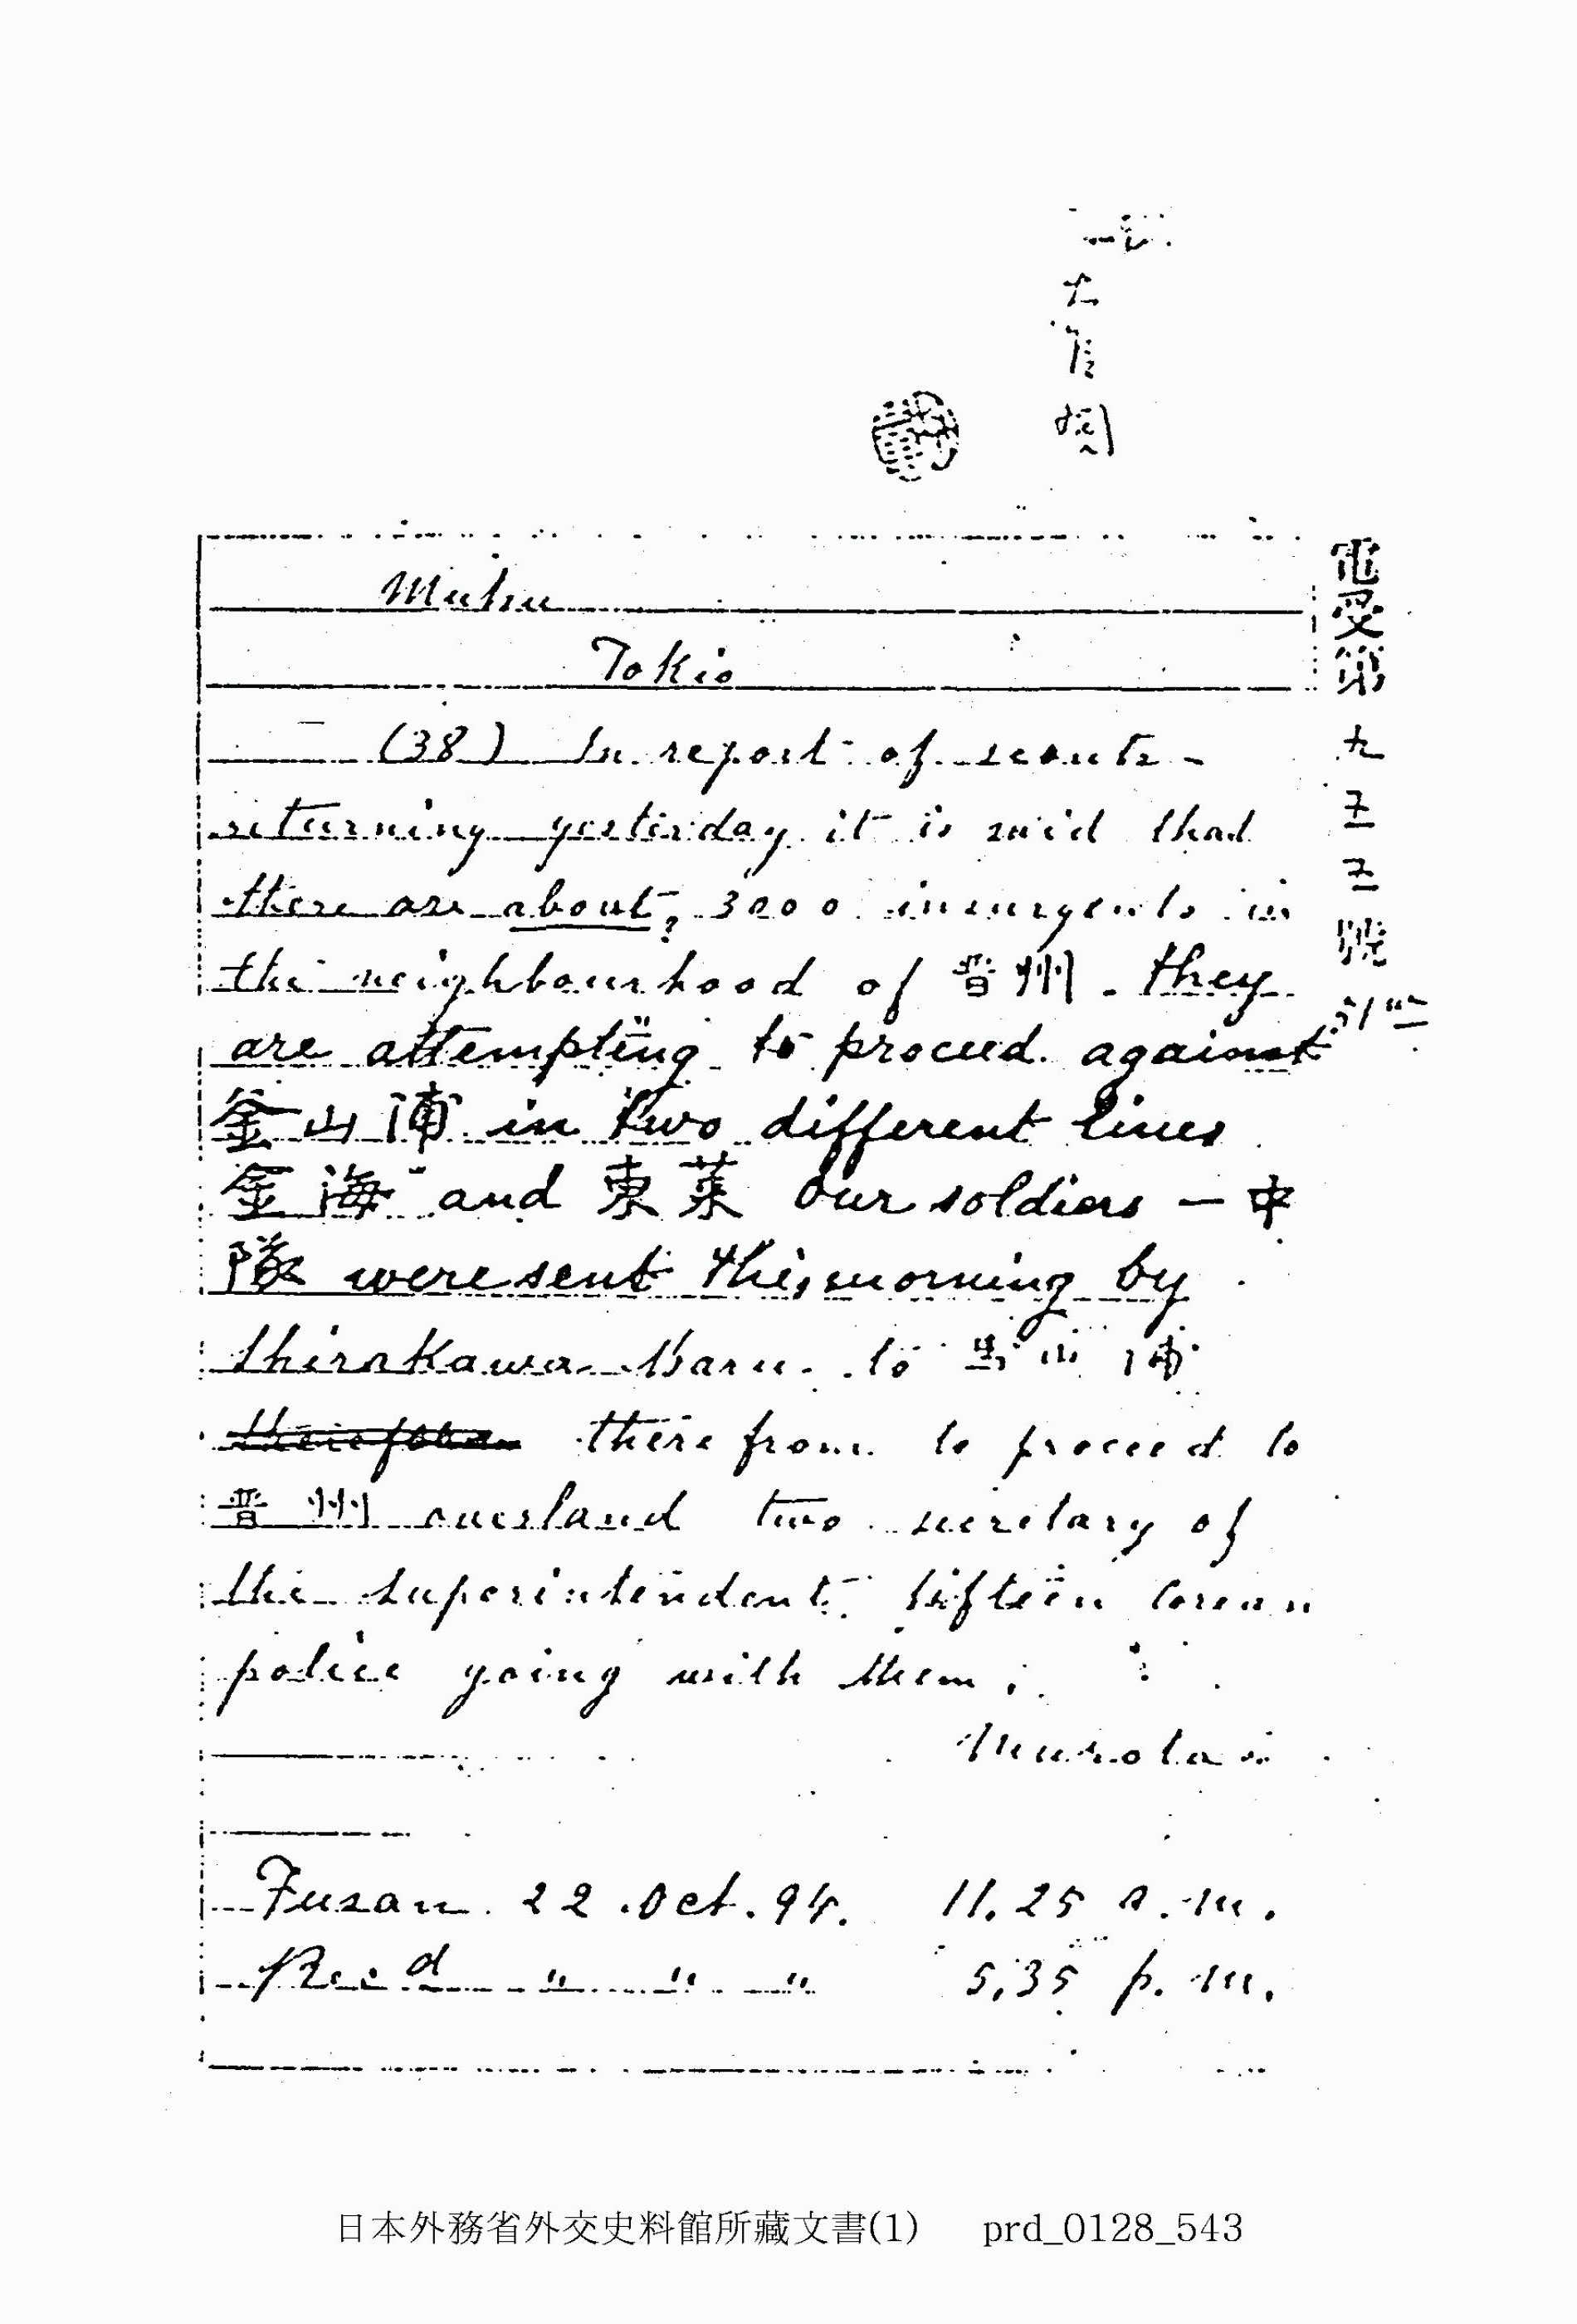 電受第九五五號
Mutsu
Tokio
(38) In report of scouts
returning yesterday it is said that
there are about, 3000 insurgents in
the neighbourhood of 晋州. they
are attempting to proceed against
釜山浦 in two different lines
金海 and 東萊 Our soldiers 一中
隊 were sent this morning by
Shirakawa Maru to 馬山浦
there from to proceed to
晋州 overland two secretary of
the superintendent fifteen Corean
police going with them.
Murota
Fusan. 22. Oct. 94. 11.25 a.m.
Rec'd " " " 5,35 p.m.
日本外務省外交史料館所藏文書(1) prd_0128_543